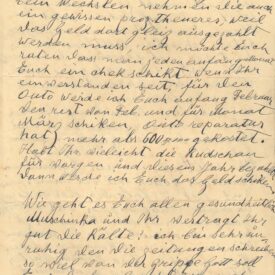 beim Wechslen nehmen sie auch
ein gewissen prozt heueres, weil
das Geld dort gleig ausgezahlt
werden muss, ich möchte Euch
raten dass man jeden anfang monat
Euch ein chek schikt wenn Ihr
einverstanden seit, für den
Outo werde ich Euch anfang Februar
den rest von Feb. und für monat
März schiken. Outo reparatur
hat mehr als 600 gekostet.
Habt Ihr vileicht die Rudschau
für worgen und diesen Jahr bezahlt
dann werde ich Euch das geld schiken
Wie geht es Euch allen gesundheitlich
Muschinka und Ihr vertragt Ihr
gut die Kälte? ich bin sehr un
ruhig den die zeitungen schreiben
so viel von der grippe Gott soll